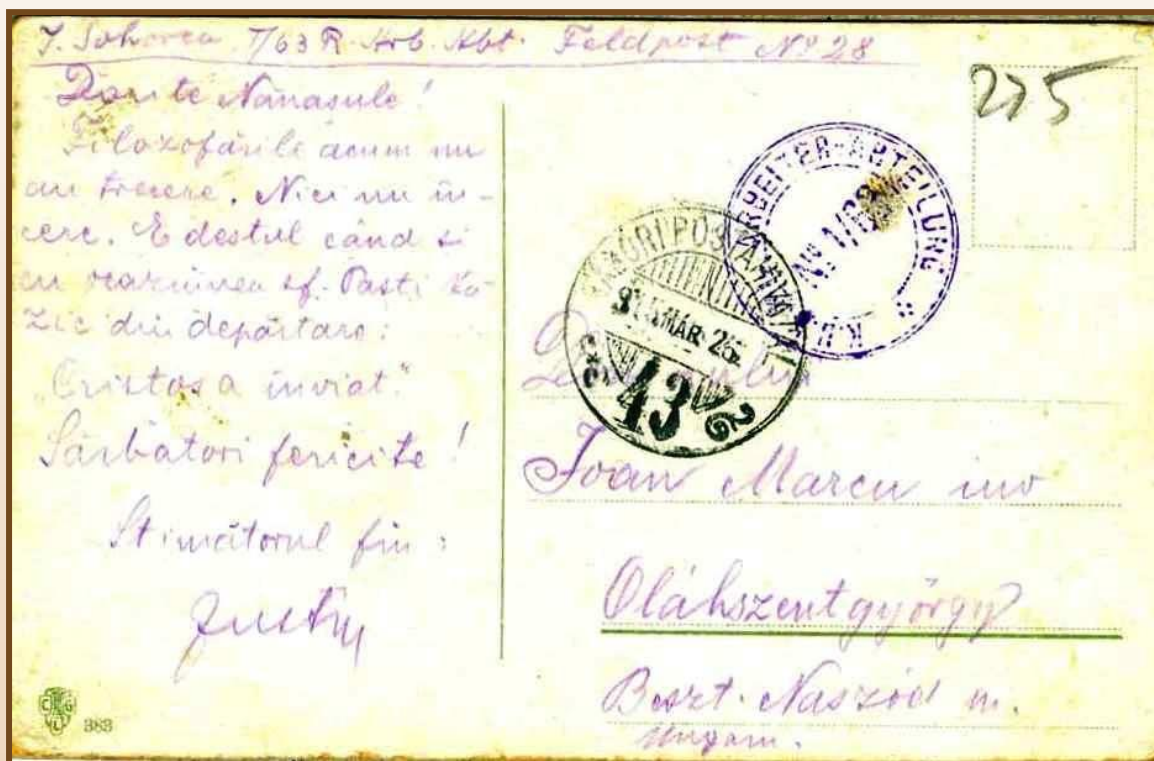 J. Sohorca I/63 R. Arb. Abt. Feldpost Nº 28
Nănașule!
Filozofările acum nu
au trecere. Nici nu în-
cerc. E destul când și
cu ocaziunea sf. Pasti
zic din depărtare:
„Cristos a inviat."
Sărbatori fericite!
Stimătorul fin:
Justin
CHG
383
275
ARBEITER-ABTEILUNG
Nº 1/63
K.u.K.
TÁBORI POSTAHIVATAL
MÁR. 25
43
Joan Marcu inv
Oláhszentgyörgy
Beszt. Naszód m.
Ungarn.